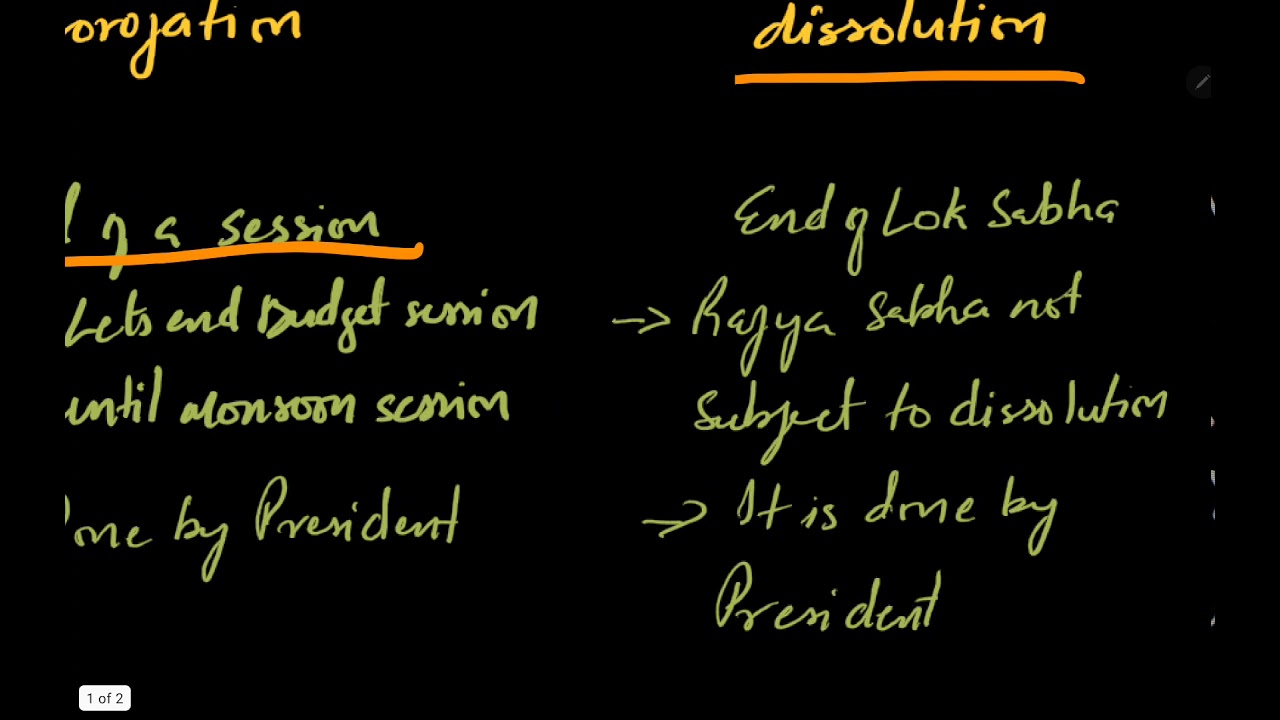 orogation
dissolution
of a session
Lets end Budget session
until monsoon session
one by President
End of Lok Sabha
→ Rajya Sabha not
Subject to dissolution
→ It is done by
President
1 of 2